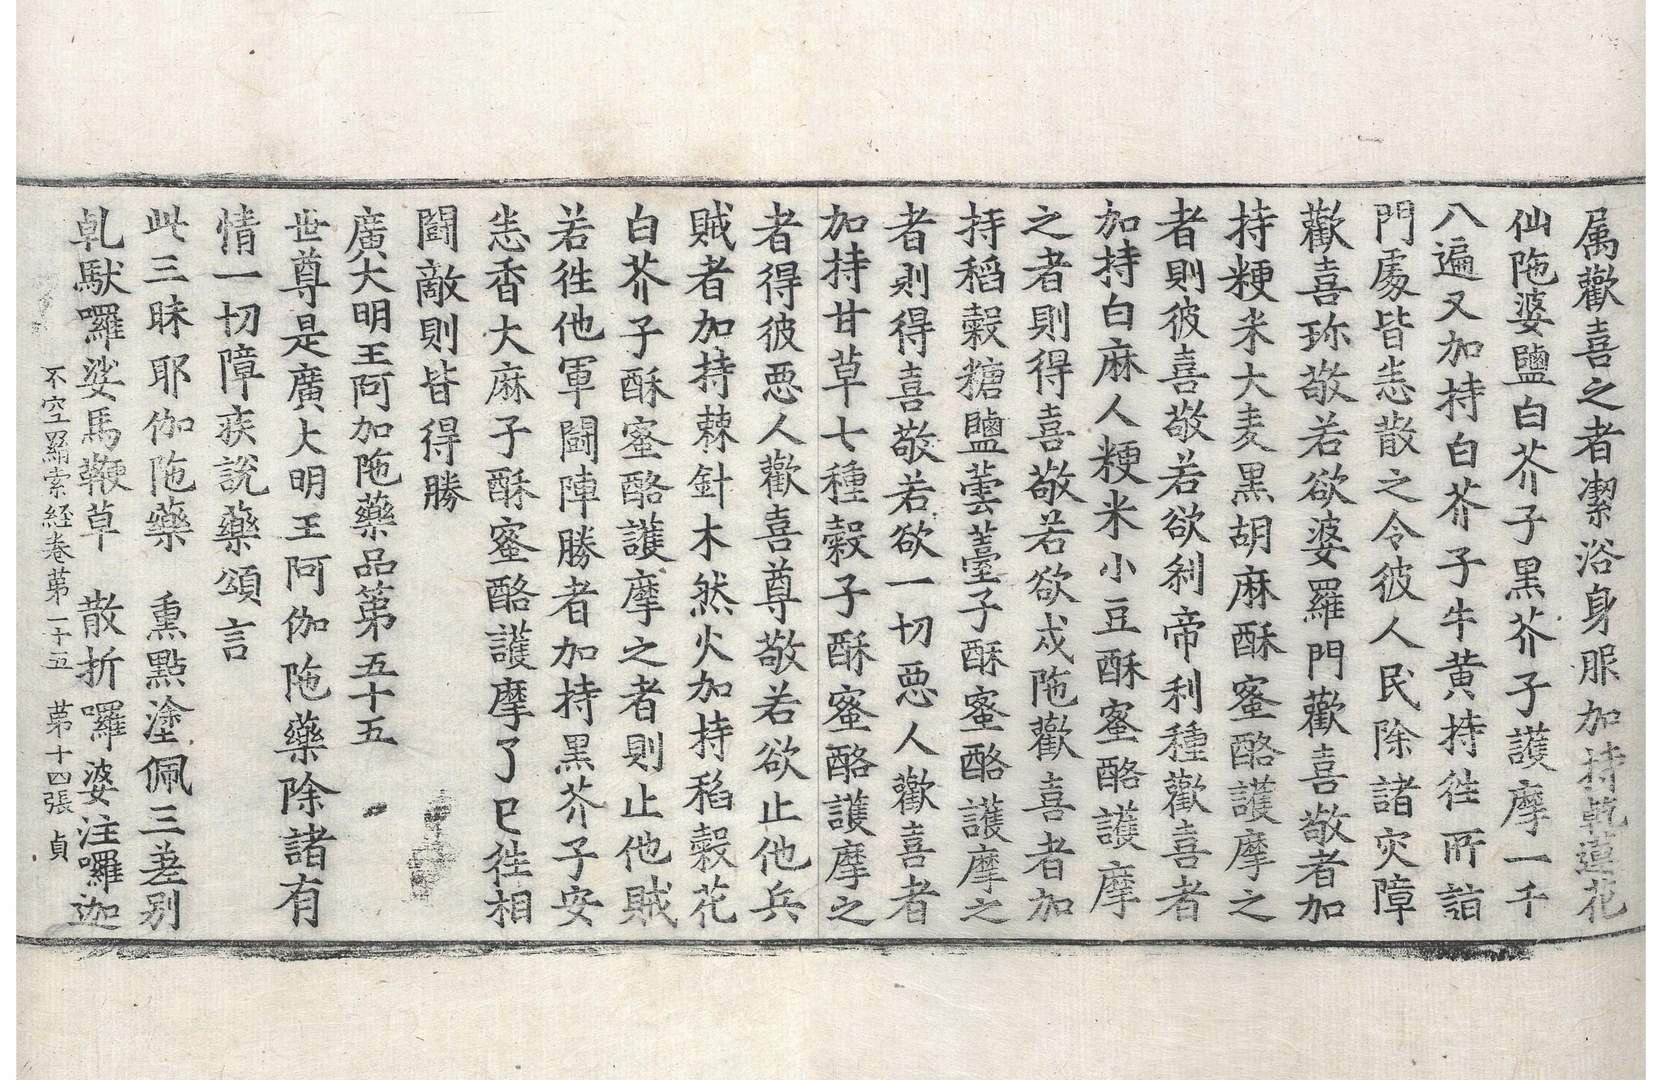 属歡喜之者潔浴身服加持乾蓮花
仙陁婆鹽白芥子黒芥子護摩一千
八遍又加持白芥子牛黃持徃所詣
門處皆悉散之令彼人民除諸灾障
歡喜珎敬若欲婆羅門歡喜敬者加
持粳米大麦黒胡麻酥蜜酪護摩之
者則彼喜敬若欲刹帝利種歡喜者
加持白麻人粳米小豆酥蜜酪護摩
之者則得喜敬若欲戍陁歡喜者加
持稻穀糖鹽蕓薹子酥蜜酪護摩之
者則得喜敬若欲一切惡人歡喜者
加持甘草七種穀子酥蜜酪護摩之
者得彼惡人歡喜尊敬若欲止他兵
賊者加持棘針木然火加持稻穀花
白芥子酥蜜酪護摩之者則止他賊
若徃他軍鬪陣勝者加持黒芥子安
悉香大麻子酥蜜酪護摩了已徃相
鬪敵則皆得勝
廣大明王阿加陁藥品第五十五
世尊是廣大明王阿伽陁藥除諸有
情一切障疾說藥頌言
此三昧耶伽陁藥　熏點塗佩三差別
乹馱囉娑馬鞭草　散折囉婆注囉迦
不空羂索経卷第二十五　第十四張　貞